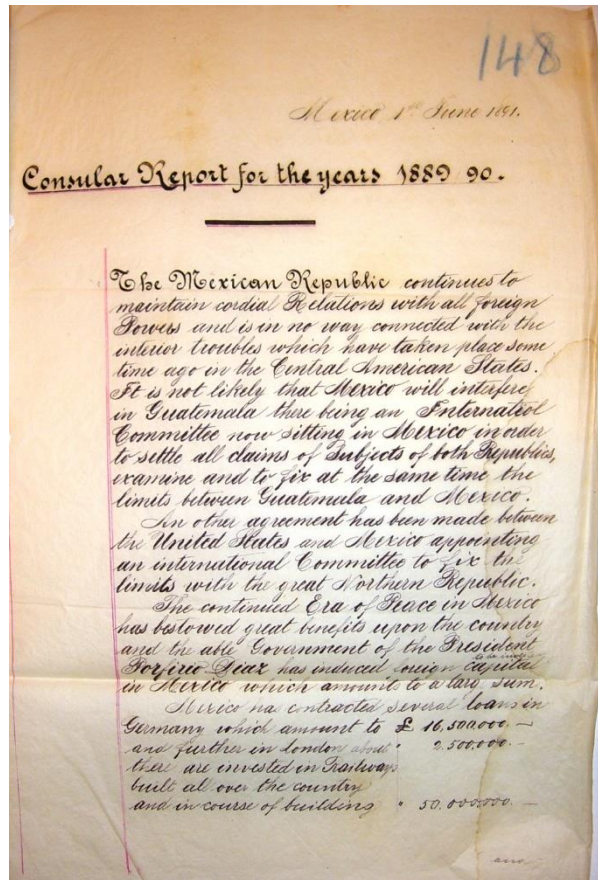 148
Mexico 1st June 1891.
Consular Report for the years 1889 90.
The Mexican Republic continues to
maintain cordial Relations with all foreign
Powers and is in no way connected with the
interior troubles which have taken place some
time ago in the Central American States.
It is not likely that Mexico will interfere
in Guatemala there being an Internatiol
Committee now sitting in Mexico in order
to settle all claims of Subjects of both Republics,
examine and to fix at the same time the
limits between Guatemala and Mexico.
An other agreement has been made between
the United States and Mexico appointing
an international Committee to fix the
limits with the great Northern Republic.
The continued Era of Peace in Mexico
has bestowed great benefits upon the country
and the able Government of the President
Porfirio Diaz has induced foreign capital
in Mexico which amounts to a larg sum.
Mexico has contracted several loans in
Germany which amount to £ 16,500,000.—
and further in london about " 2.500,000.—
there are invested in Railways
built all over the country
and in course of building " 50.000.000.—
and